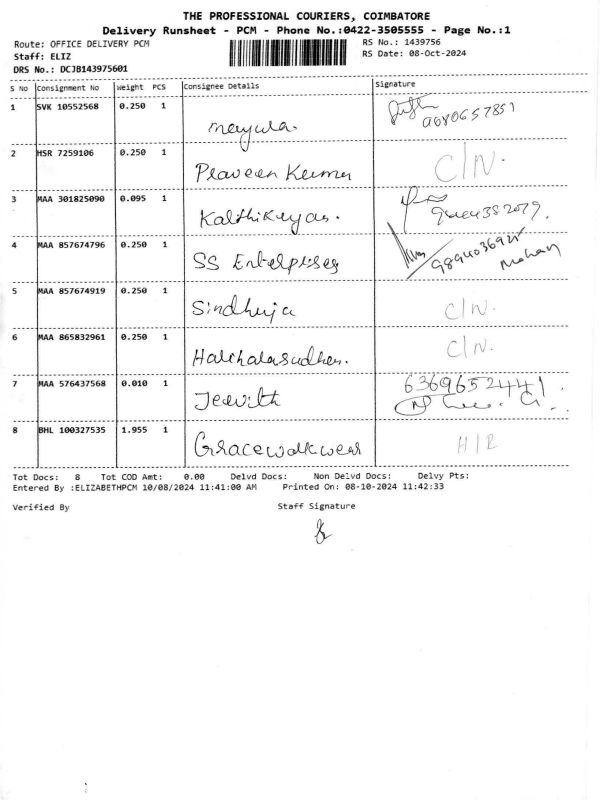 THE PROFESSIONAL COURIERS, COIMBATORE
Delivery Runsheet - PCM - Phone No.:0422-3505555 - Page No.:1
Route: OFFICE DELIVERY PCM
RS No.: 1439756
Staff: ELIZ
RS Date: 08-Oct-2024
DRS No.: DCJB143975601
S No Consignment No Weight PCS Consignee Details Signature
1 SVK 10552568 0.250 1
2 HSR 7259106 0.250 1 Praveen Kumar C/N.
3 MAA 301825090 0.095 1 Kalthikeyan.
4 MAA 857674796 0.250 1 SS Enterprises Mohan
5 MAA 857674919 0.250 1 Sindhuja C/N.
6 MAA 865832961 0.250 1 C/N.
7 MAA 576437568 0.010 1 Jeevith 6369652441
8 BHL 100327535 1.955 1 Gracewalkwear
Tot Docs: 8 Tot COD Amt: 0.00 Delvd Docs: Non Delvd Docs: Delvy Pts:
Entered By :ELIZABETHPCM 10/08/2024 11:41:00 AM Printed On: 08-10-2024 11:42:33
Verified By Staff Signature